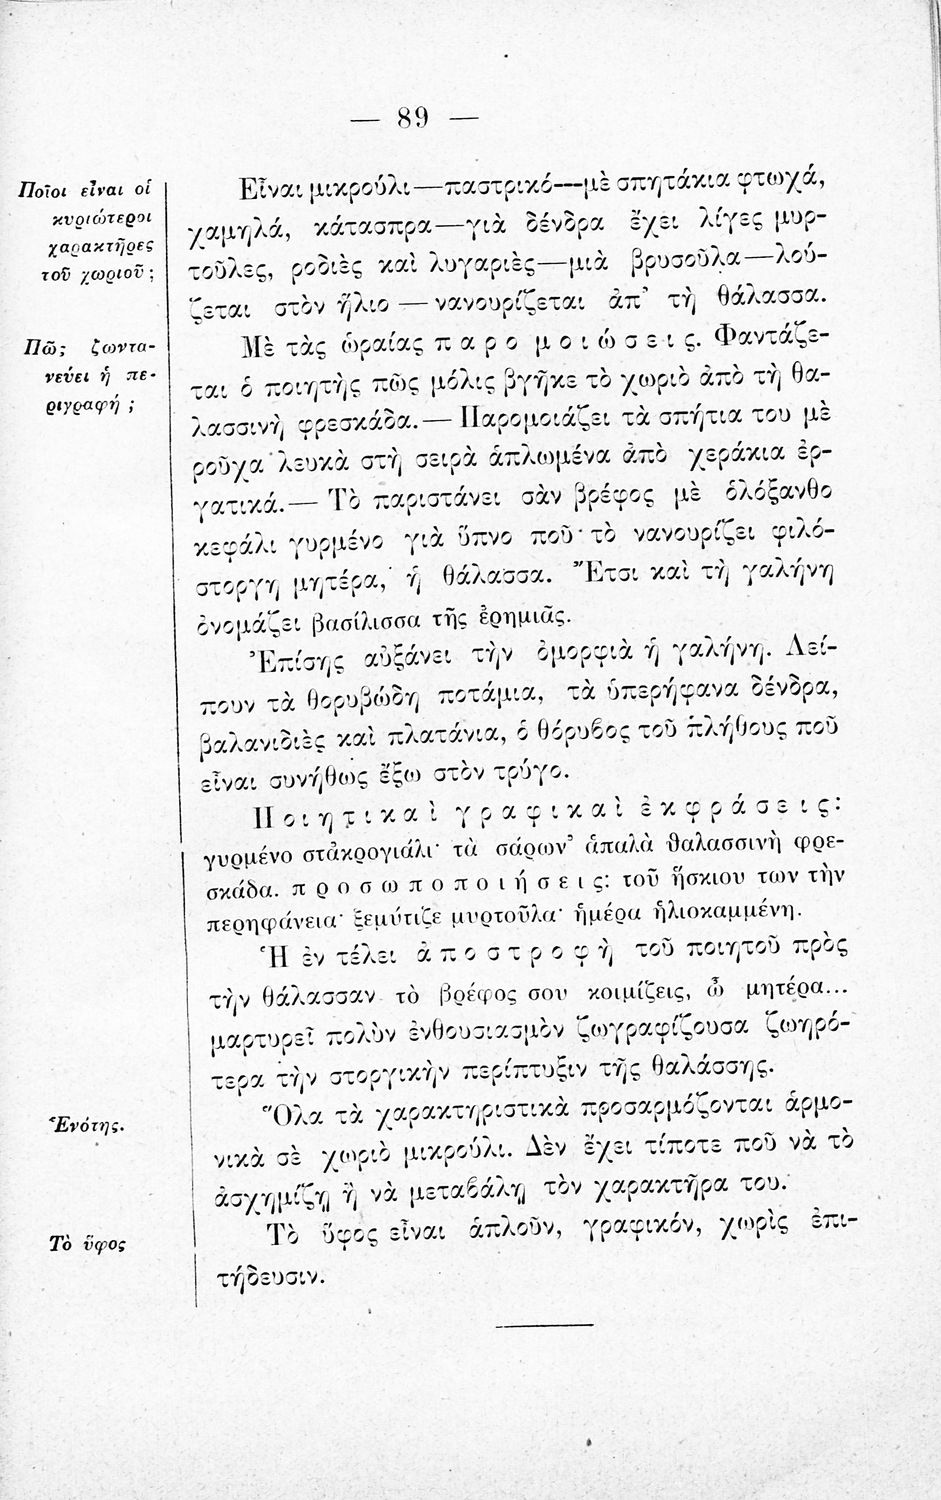 — 89 —
Ποῖοι εἶναι οἱ
κυριώτεροι
χαρακτῆρες
τοῦ χωριοῦ;
Εἶναι μικρούλι—παστρικό—μὲ σπητάκια φτωχά,
χαμηλά, κάτασπρα—γιὰ δένδρα ἔχει λίγες μυρ-
τοῦλες, ροδιὲς καὶ λυγαριὲς—μιὰ βρυσοῦλα—λού-
ζεται στὸν ἥλιο — νανουρίζεται ἀπ’ τὴ θάλασσα.
Πῶ; ζωντα-
νεύει ἡ πε-
ριγραφή ;
Μὲ τὰς ὡραίας π α ρ ο μ ο ι ώ σ ε ι ς. Φαντάζε-
ται ὁ ποιητὴς πῶς μόλις βγῆκε τὸ χωριὸ ἀπὸ τὴ θα-
λασσινὴ φρεσκάδα.— Παρομοιάζει τὰ σπήτια του μὲ
ροῦχα λευκὰ στὴ σειρὰ ἁπλωμένα ἀπὸ χεράκια ἐρ-
γατικά.— Τὸ παριστάνει σὰν βρέφος μὲ ὁλόξανθο
κεφάλι γυρμένο γιὰ ὕπνο ποῦ τὸ νανουρίζει φιλό-
στοργη μητέρα, ἡ θάλασσα. Ἔτσι καὶ τὴ γαλήνη
ὀνομάζει βασίλισσα τῆς ἐρημιᾶς.
Ἐπίσης αὐξάνει τὴν ὀμορφιὰ ἡ γαλήνη. Λεί-
πουν τὰ θορυβώδη ποτάμια, τὰ ὑπερήφανα δένδρα,
βαλανιδιὲς καὶ πλατάνια, ὁ θόρυβος τοῦ πλήθους ποῦ
εἶναι συνήθως ἔξω στὸν τρύγο.
Π ο ι η τ ι κ α ὶ γ ρ α φ ι κ α ὶ ἐ κ φ ρ ά σ ε ι ς:
γυρμένο στἀκρογιάλι· τὰ σάρων’ ἁπαλὰ θαλασσινὴ φρε-
σκάδα. π ρ ο σ ω π ο π ο ι ή σ ε ι ς: τοῦ ἥσκιου των τὴν
περηφάνεια· ξεμύτιζε μυρτοῦλα· ἡμέρα ἡλιοκαμμένη.
Ἡ ἐν τέλει ἀ π ο σ τ ρ ο φ ὴ τοῦ ποιητοῦ πρὸς
τὴν θάλασσαν τὸ βρέφος σου κοιμίζεις, ὦ μητέρα...
μαρτυρεῖ πολὺν ἐνθουσιασμὸν ζωγραφίζουσα ζωηρό-
τερα τὴν στοργικὴν περίπτυξιν τῆς θαλάσσης.
Ἑνότης.
Ὅλα τὰ χαρακτηριστικὰ προσαρμόζονται ἁρμο-
νικὰ σὲ χωριὸ μικρούλι. Δὲν ἔχει τίποτε ποῦ νὰ τὸ
ἀσχημίζῃ ἢ νὰ μεταβάλῃ τὸν χαρακτῆρα του.
Τὸ ὕφος
Τὸ ὕφος εἶναι ἁπλοῦν, γραφικόν, χωρὶς ἐπι-
τήδευσιν.